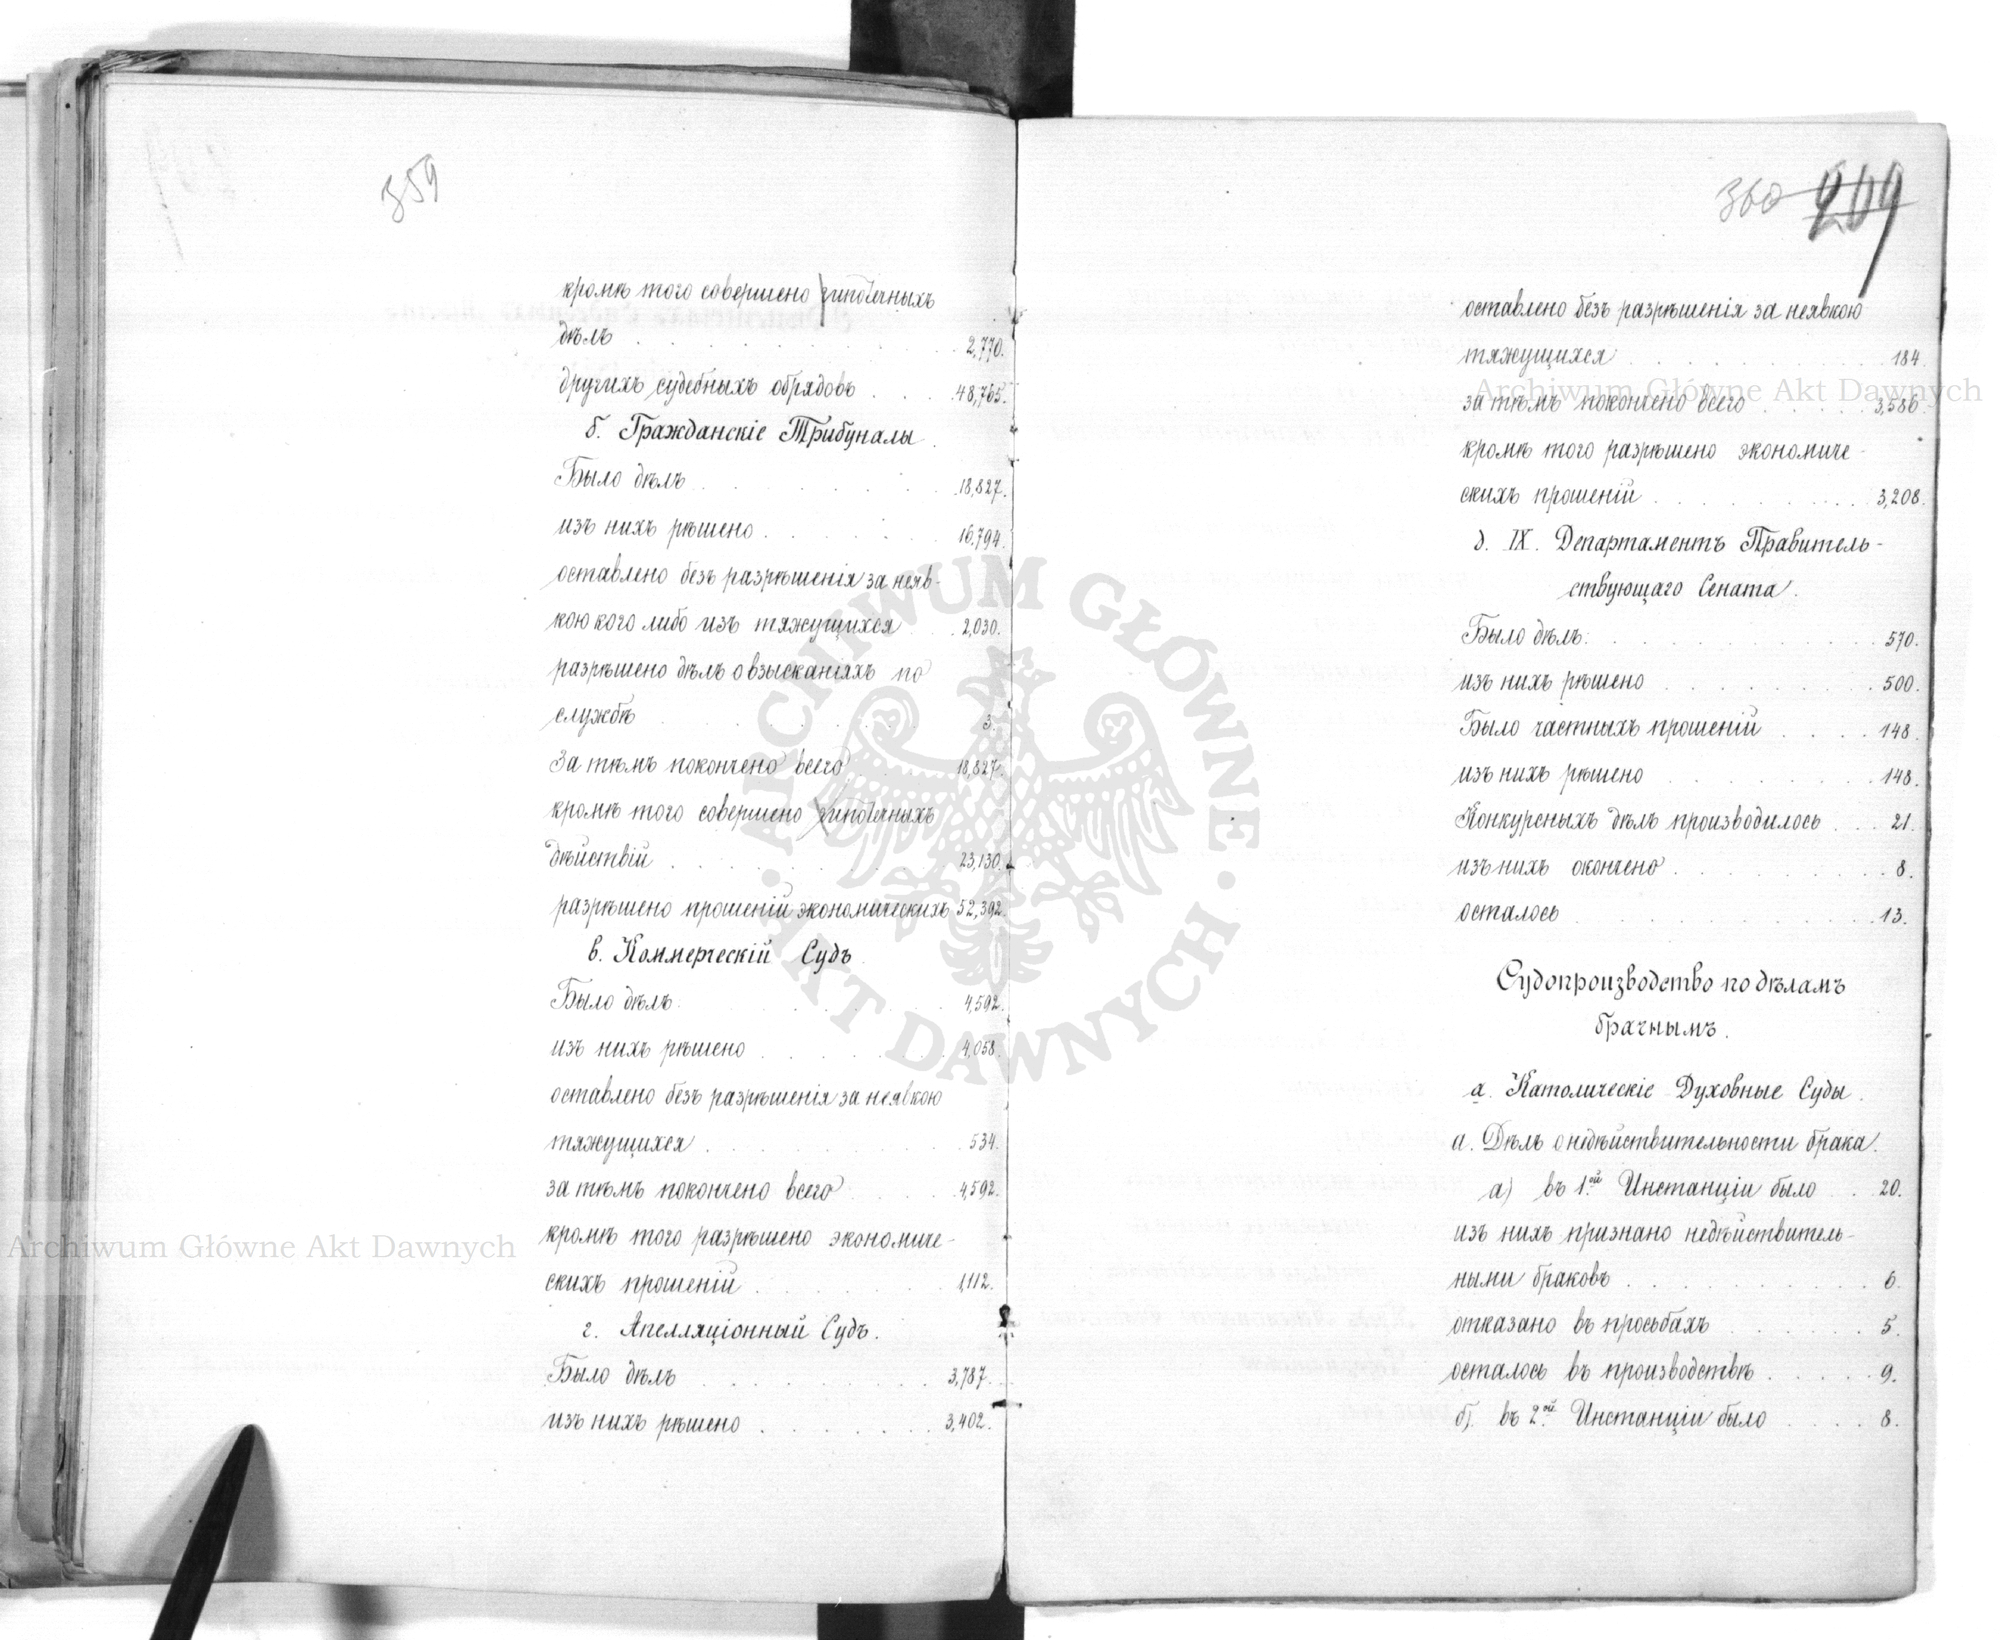 359
кромѣ того совершено гипотечныхъ
дѣлъ . . . . . . . . . 2,770.
другихъ судебныхъ обрядовъ . . . 48,765.
б. Гражданскіе Трибуналы.
Было дѣлъ . . . . . . . 18,827.
изъ нихъ рѣшено . . . . . . 16,794.
оставлено безъ разрѣшенія за неяв-
кою кого либо изъ тяжущихся . . 2,030.
разрѣшено дѣлъ о взысканіяхъ по
службѣ . . . . . . . . 3.
За тѣмъ покончено всего . . . . 18,827.
кромѣ того совершено гипотечныхъ
дѣйствій . . . . . . . . 23,130.
разрѣшено прошеній экономическихъ 52,392.
в. Коммерческій Судъ.
Было дѣлъ . . . . . . . 4,592.
изъ нихъ рѣшено . . . . . . 4,058.
оставлено безъ разрѣшенія за неявкою
тяжущихся . . . . . . . 534.
за тѣмъ покончено всего . . . . 4,592.
кромѣ того разрѣшено экономиче-
скихъ прошеній . . . . . . 1,112.
г. Апелляціонный Судъ.
Было дѣлъ . . . . . . . . 3,787.
изъ нихъ рѣшено . . . . . . . 3,402.
360 209
оставлено безъ разрѣшенія за неявкою
тяжущихся . . . . . . . . 184.
за тѣмъ покончено всего . . . . . 3,586.
кромѣ того разрѣшено экономиче-
скихъ прошеній . . . . . . . 3,208.
д. IX. Департаментъ Правитель-
ствующаго Сената.
Было дѣлъ: . . . . . . . . 570.
изъ нихъ рѣшено . . . . . . . 500.
Было частныхъ прошеній . . . . 148.
изъ нихъ рѣшено . . . . . . . 148.
Конкурсныхъ дѣлъ производилось . . . 21.
изъ нихъ окончено . . . . . . . 8.
осталось . . . . . . . . . 13.
Судопроизводство по дѣламъ
брачнымъ.
а. Католическіе Духовные Суды.
а. Дѣлъ о недѣйствительности брака.
а) въ 1.ой Инстанціи было . . 20.
изъ нихъ признано недѣйствитель-
ными браковъ . . . . . . . . 6.
отказано въ просьбахъ . . . . . . 5.
осталось въ производствѣ . . . . . 9.
б). въ 2.ой Инстанціи было . . . . 8.
Archiwum Główne Akt Dawnych
Archiwum Główne Akt Dawnych
ARCHIWUM GŁÓWNE · AKT DAWNYCH ·